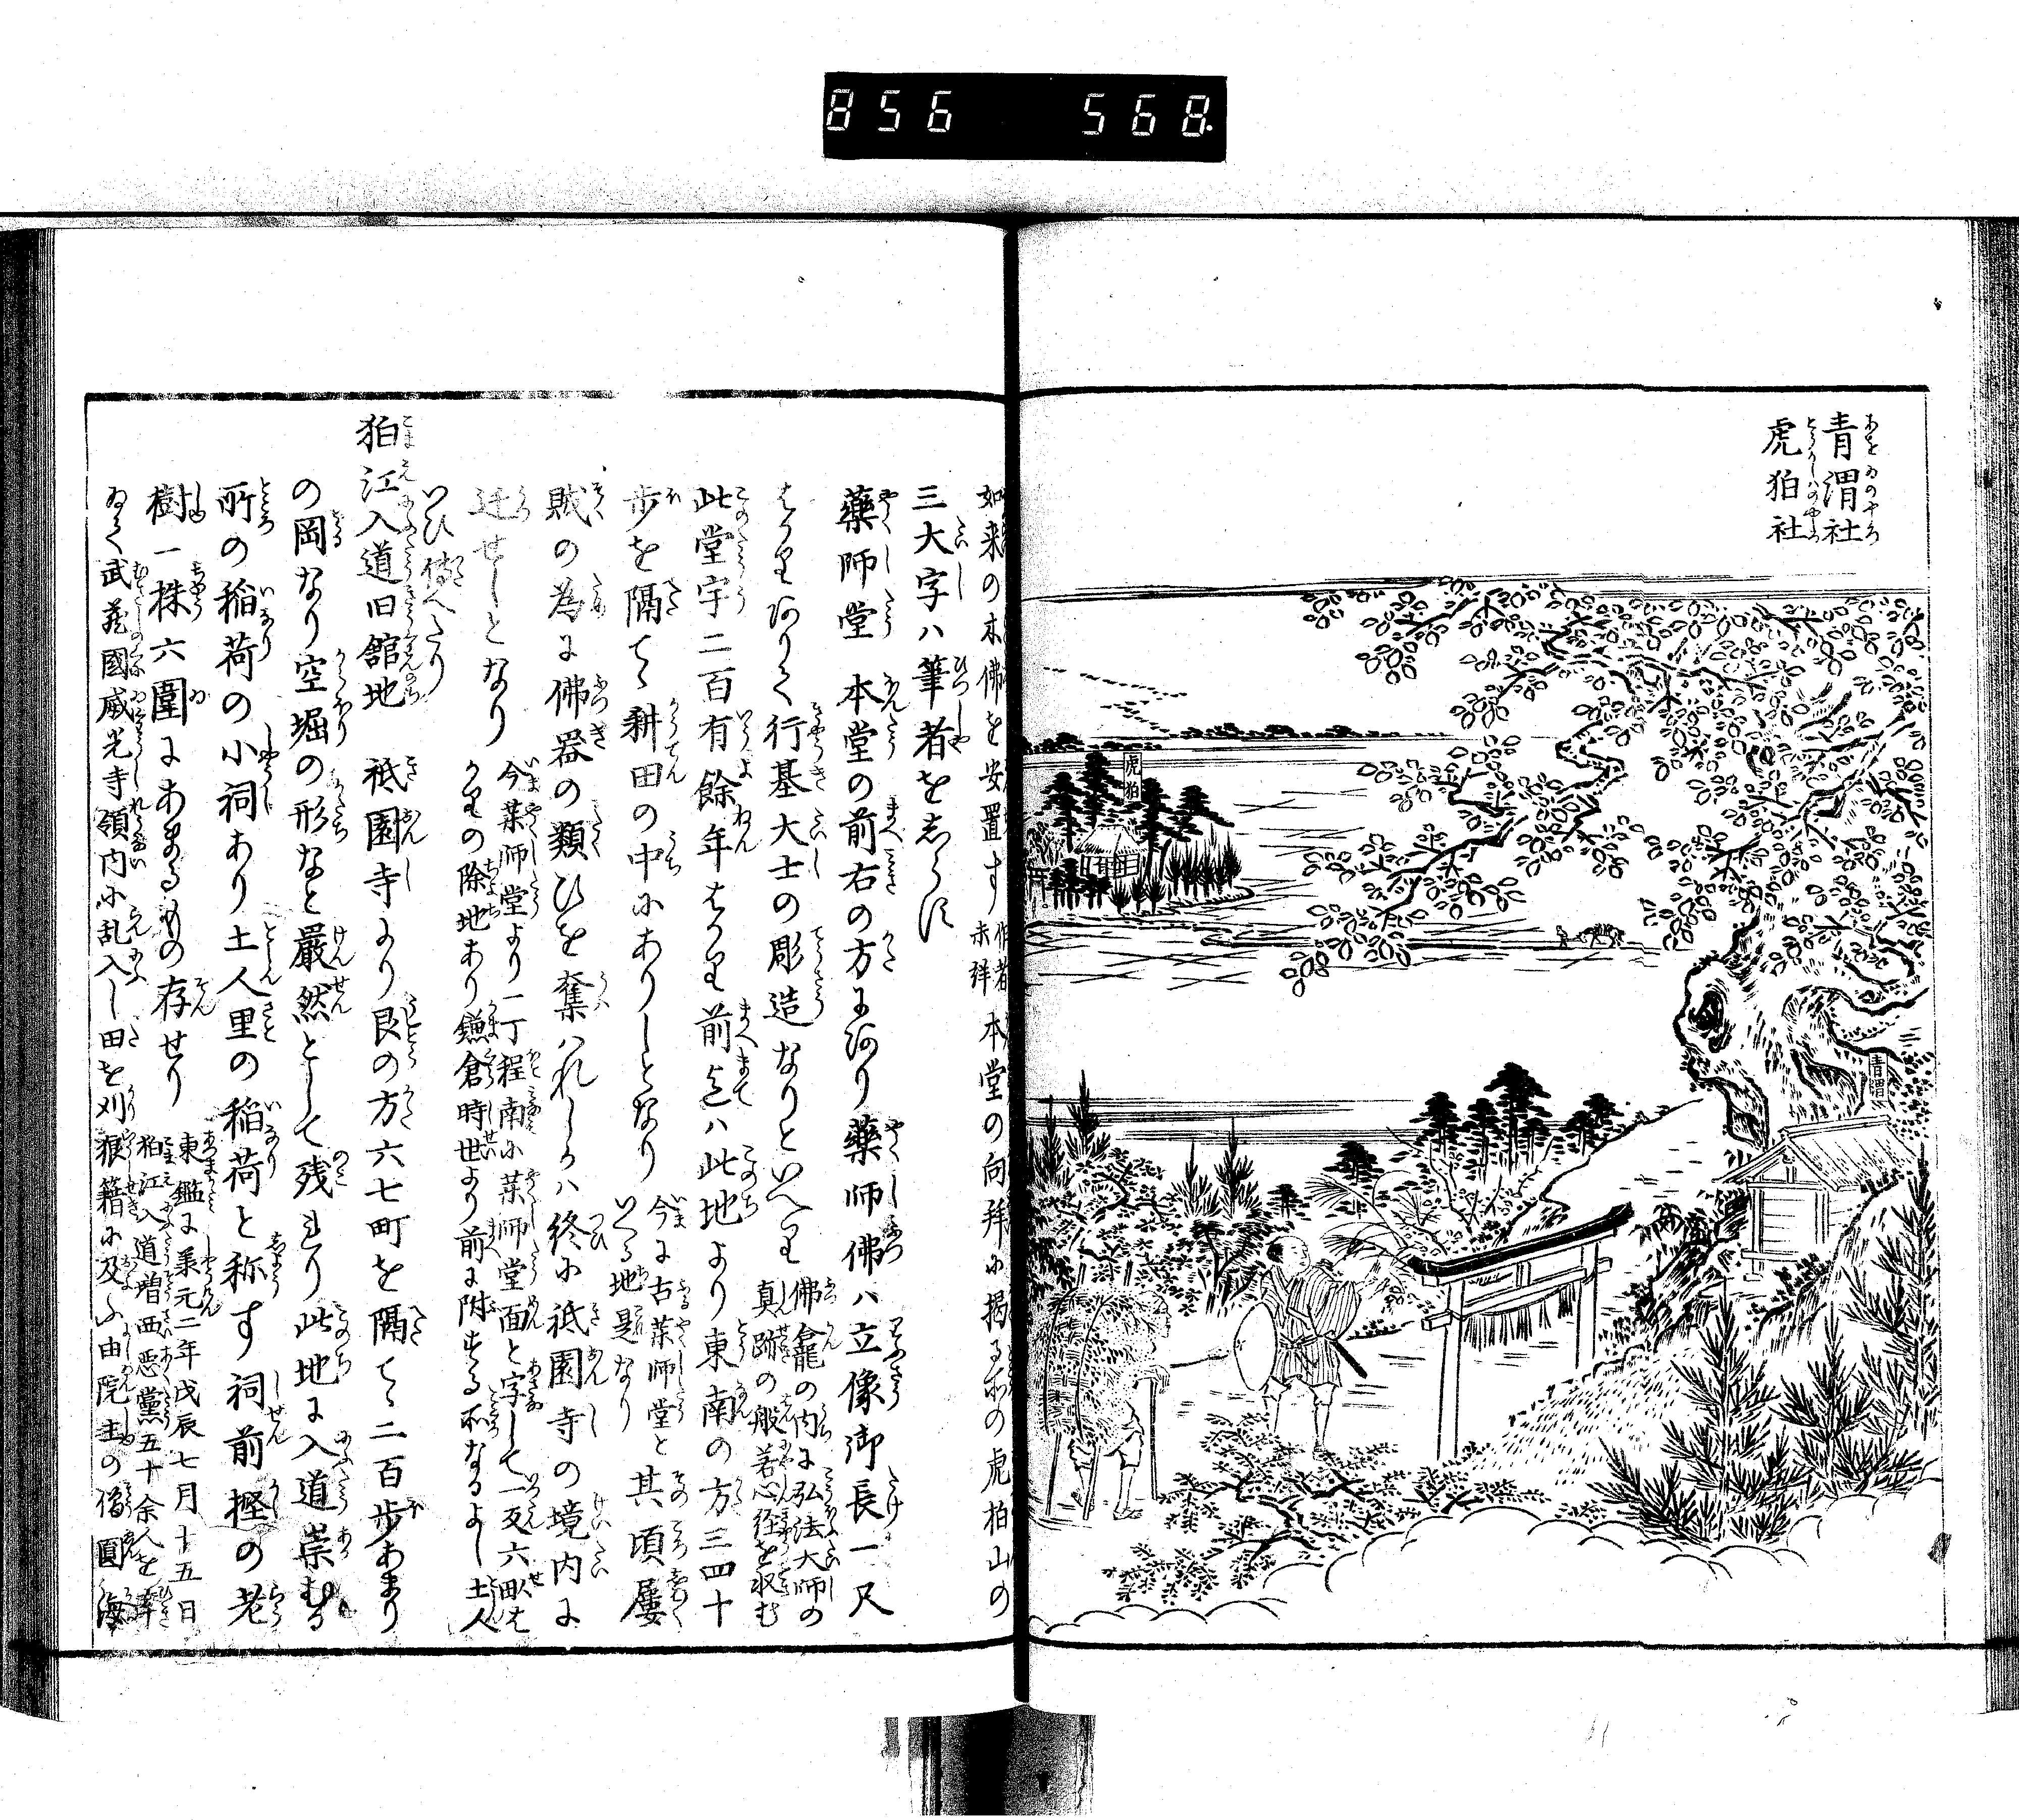 856 568.
青渭社
あをゐのやしろ
虎狛社
とらこまのやしろ
虎狛
青渭
如来の木佛を安置す 作者未詳 本堂の向拜に掲る所の虎狛山の
三大字ハ筆者をしらず
藥師堂 本堂の前右の方にあり藥師佛ハ立像御長一尺
はかりありて行基大士の彫造なりといへり 佛龕の内に弘法大師の真蹟の般若心経を収む
此堂宇二百有餘年はかり前迄ハ此地より東南の方三四十
歩を隔てゝ耕田の中にありしとなり 今に古藥師堂といへる地是なり 其頃屢
賊の為に佛器の類ひを奪ハれしかハ終に祇園寺の境内に
迁せしとなり 今藥師堂より一丁程南に藥師堂面と字して一反六畝はかりの除地あり鎌倉時世より前に附する所なるよし土人
いひ傳へたり
狛江入道旧舘地 祇園寺より艮の方六七町を隔てゝ二百歩あまり
の岡なり空堀の形なと嚴然として残れり此地に入道崇むる
所の稲荷の小祠あり土人里の稲荷と称す祠前樫の老
樹一株六圍にあまるもの存せり 東鑑に承元二年戊辰七月十五日狛江入道増西悪黨五十余人を率
ゐて武蔵國威光寺領内に乱入し田を刈狼籍に及ふ由院主の僧圓海